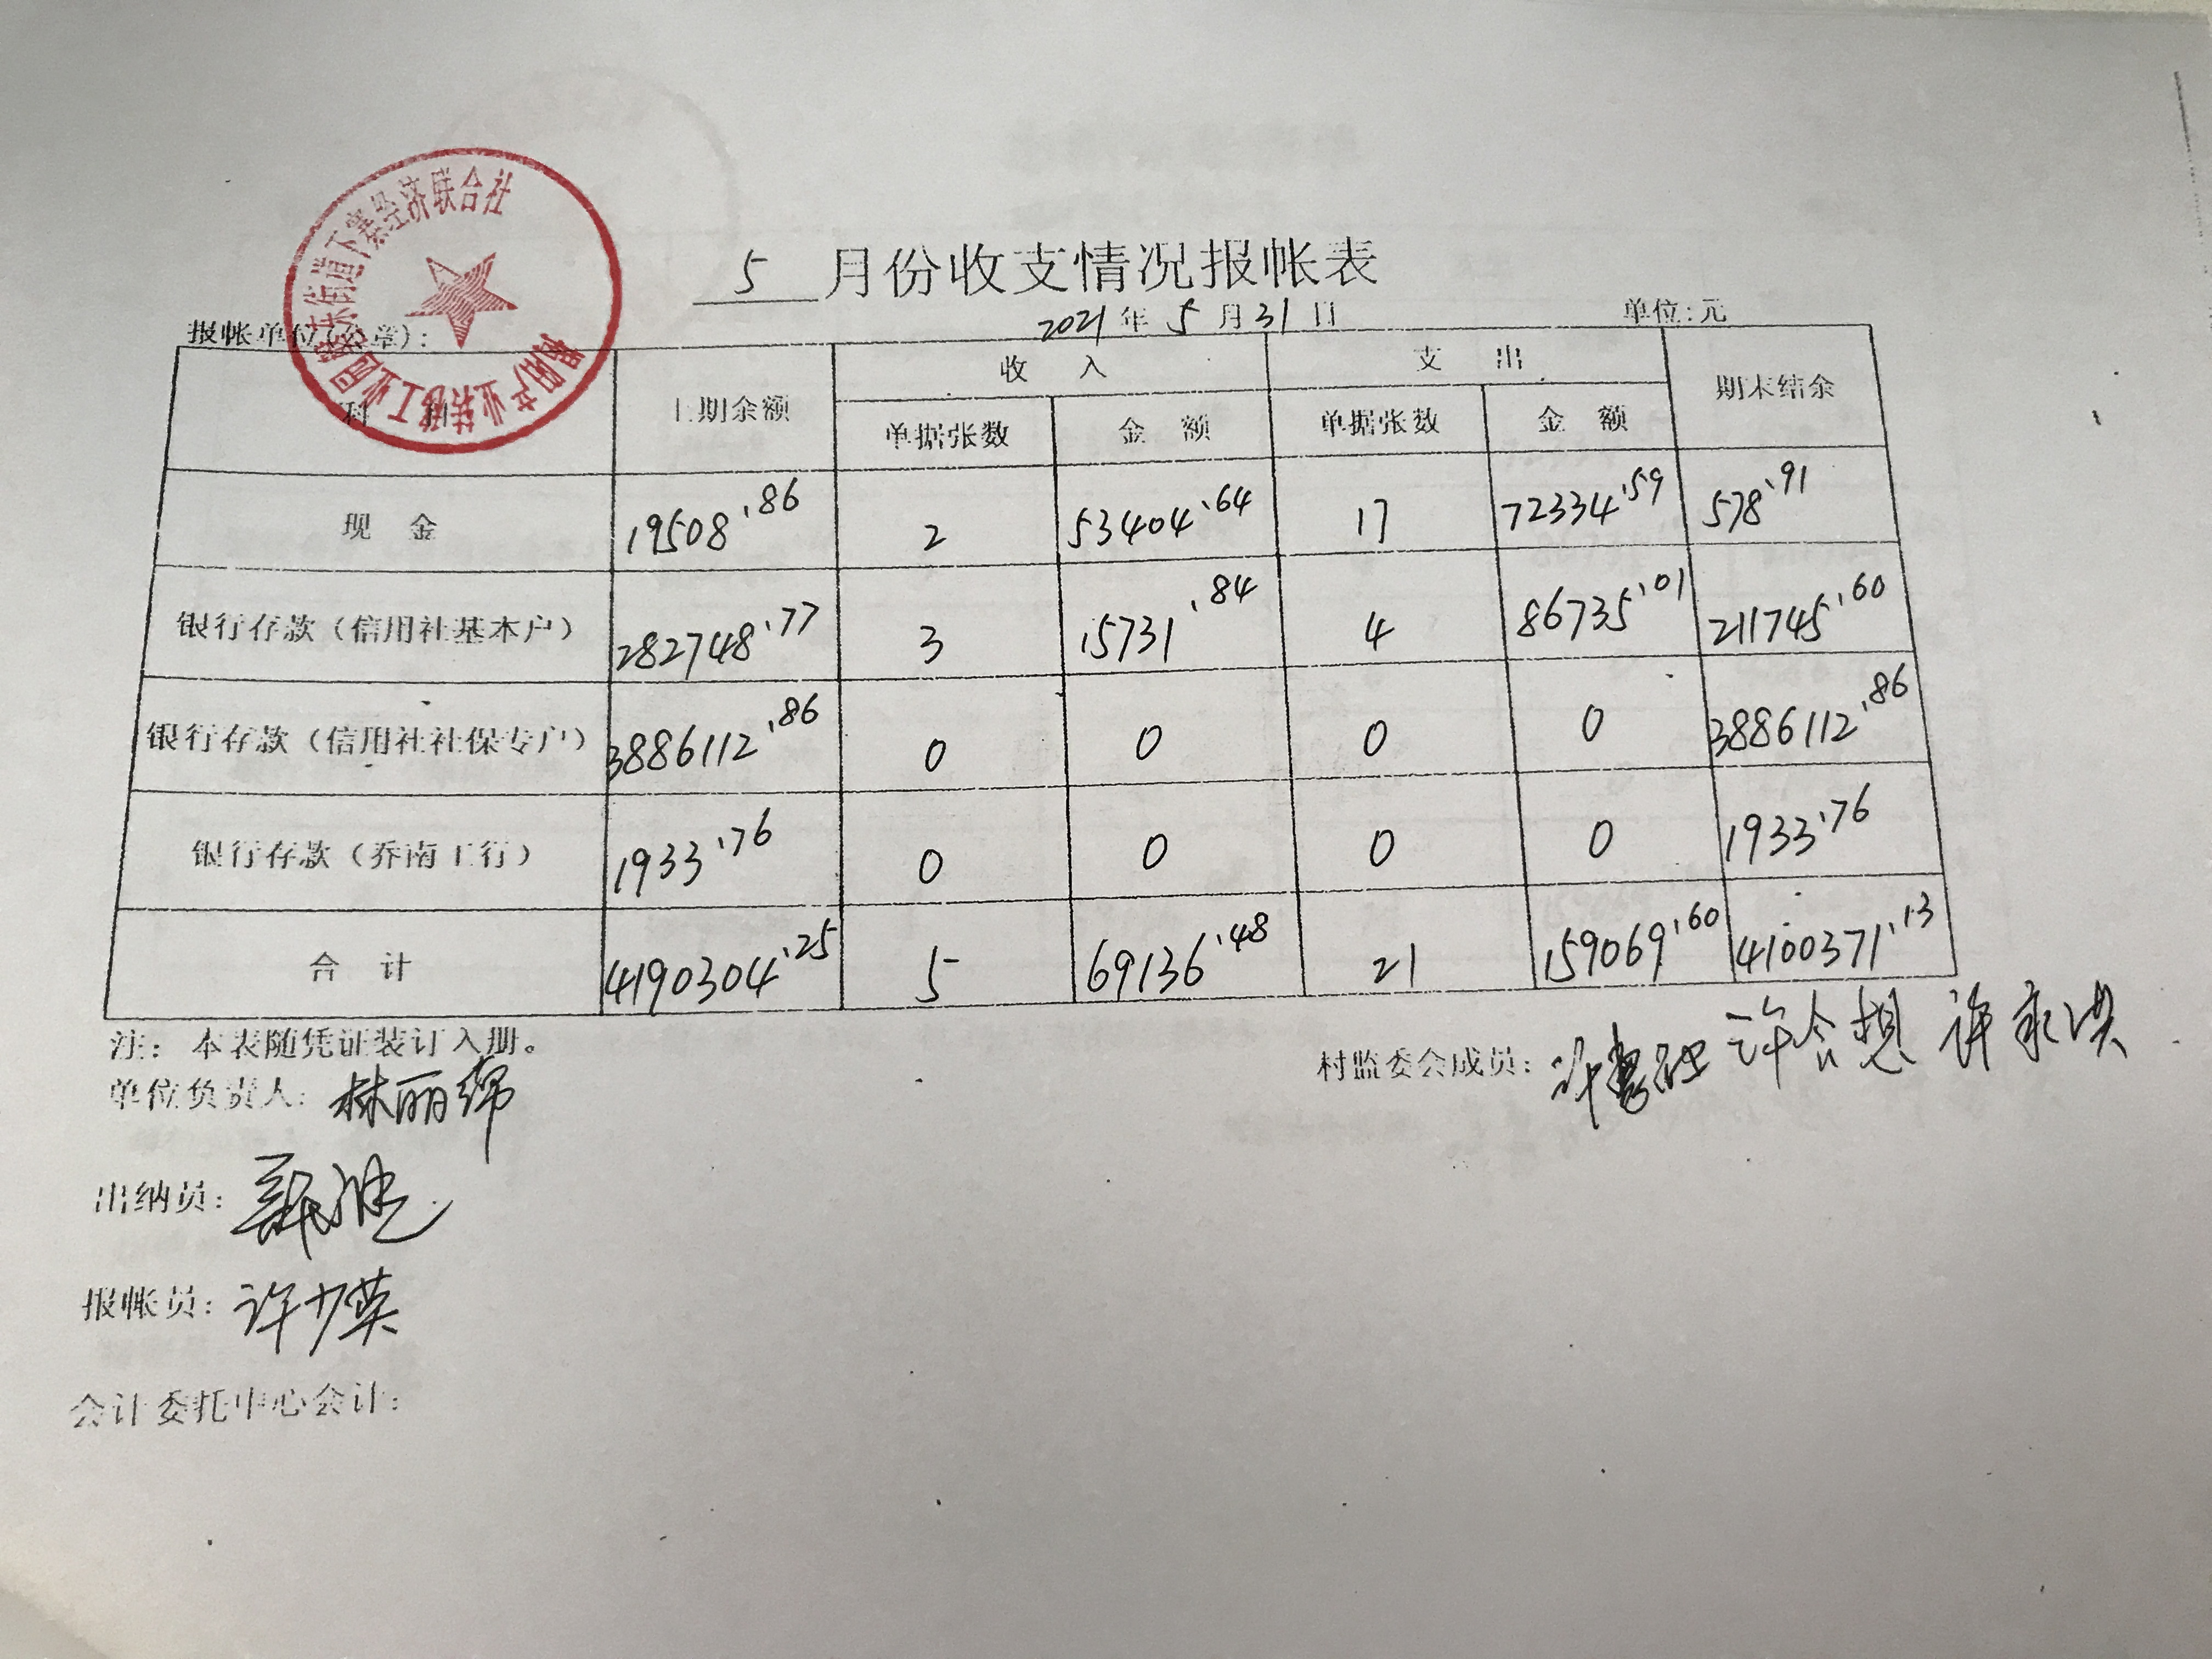 下寨经济联合社
5 月份收支情况报帐表
2021 年 5 月 31 日
单位:元
报帐单位(公章):
科 目 上期余额 收 入 支 出 期末结余
单据张数 金 额 单据张数 金 额
现 金 19508.86 2 53404.64 17 72334.59 578.91
银行存款(信用社基本户) 282748.77 3 15731.84 4 86735.01 211745.60
银行存款(信用社社保专户) 3886112.86 0 0 0 0 3886112.86
银行存款(乔南工行) 1933.76 0 0 0 0 1933.76
合 计 4190304.25 5 69136.48 21 159069.60 4100371.13
注: 本表随凭证装订入册。
村监委会成员: 许合想 许永洪
单位负责人: 林丽绵
出纳员:
报帐员: 许少英
会计委托中心会计: